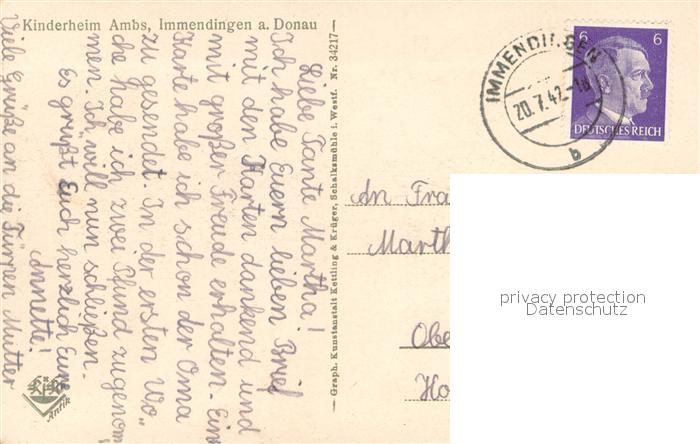 Kinderheim Ambs, Immendingen a. Donau
Liebe Tante Martha!
Ich habe Euern lieben Brief
mit den Karten dankend und
mit großer Freude erhalten. Eine
Karte habe ich schon der Oma
zu gesendet. In der ersten Wo„
che habe ich zwei Pfund zugenom„
men. Ich will nun schließen.
Es grüßt Euch herzlich Eure
Annette!
Viele Grüße an die Mutter
Graph. Kunstanstalt Kettling & Krüger, Schalksmühle i. Westf. Nr. 34217
K & K
Antik
IMMENDINGEN
20.7.42
b
6 6
DEUTSCHES REICH
An Fra
Marth
Obe
Ho
privacy protection
Datenschutz